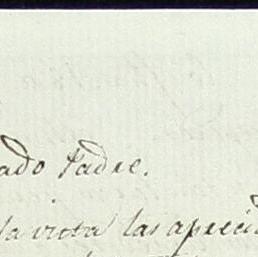 ado Padre.
la vista las apreci